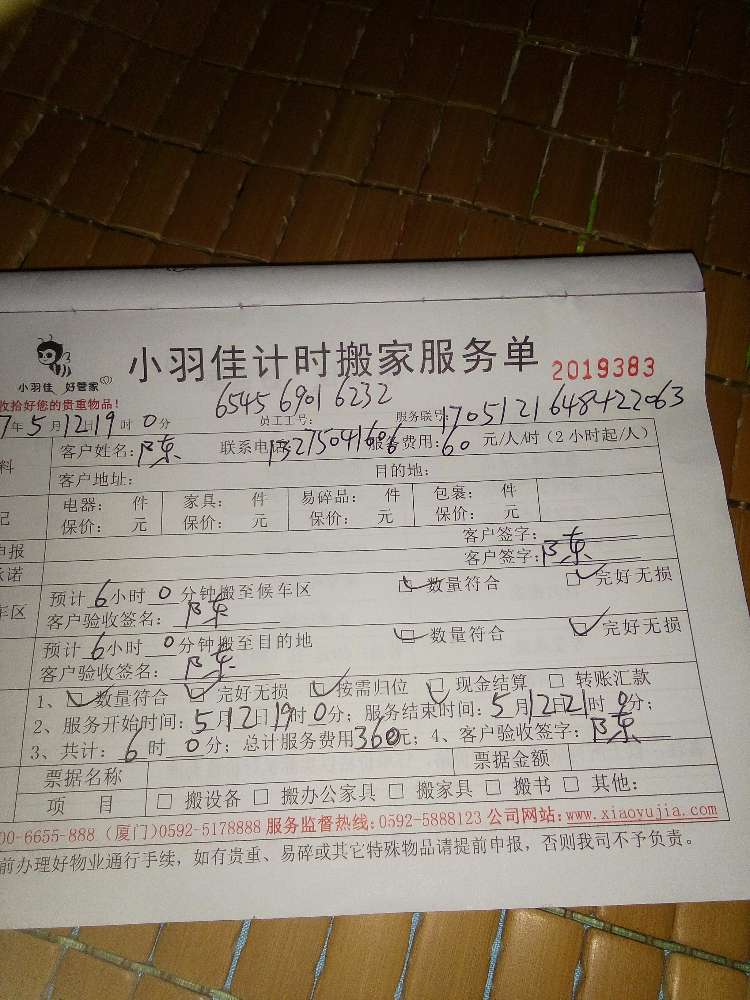 小羽佳计时搬家服务单 2019383
小羽佳 好管家
收拾好您的贵重物品!
6545 6901 6232
7年5月12日19时0分 员工工号: 服务联号:1705121648422063
料 客户姓名:陈 联系电话:13275041606 服务费用:60元/人/时(2小时起/人)
客户地址: 目的地:
记 电器: 件 家具: 件 易碎品: 件 包裹: 件
保价: 元 保价: 元 保价: 元 保价: 元
申报 客户签字:
承诺 客户签字:陈
预计6小时0分钟搬至候车区 数量符合 完好无损
车区 客户验收签名:陈
预计6小时0分钟搬至目的地 数量符合 完好无损
客户验收签名:陈
1、数量符合 完好无损 按需归位 现金结算 转账汇款
2、服务开始时间:5月12日19时0分;服务结束时间:5月12日21时0分;
3、共计:6时0分;总计服务费用360元;4、客户验收签字:陈
票据名称 票据金额
项目 搬设备 搬办公家具 搬家具 搬书 其他:
00-6655-888 (厦门)0592-5178888 服务监督热线:0592-5888123 公司网站:www.xiaoyujia.com
前办理好物业通行手续,如有贵重、易碎或其它特殊物品请提前申报,否则我司不予负责。